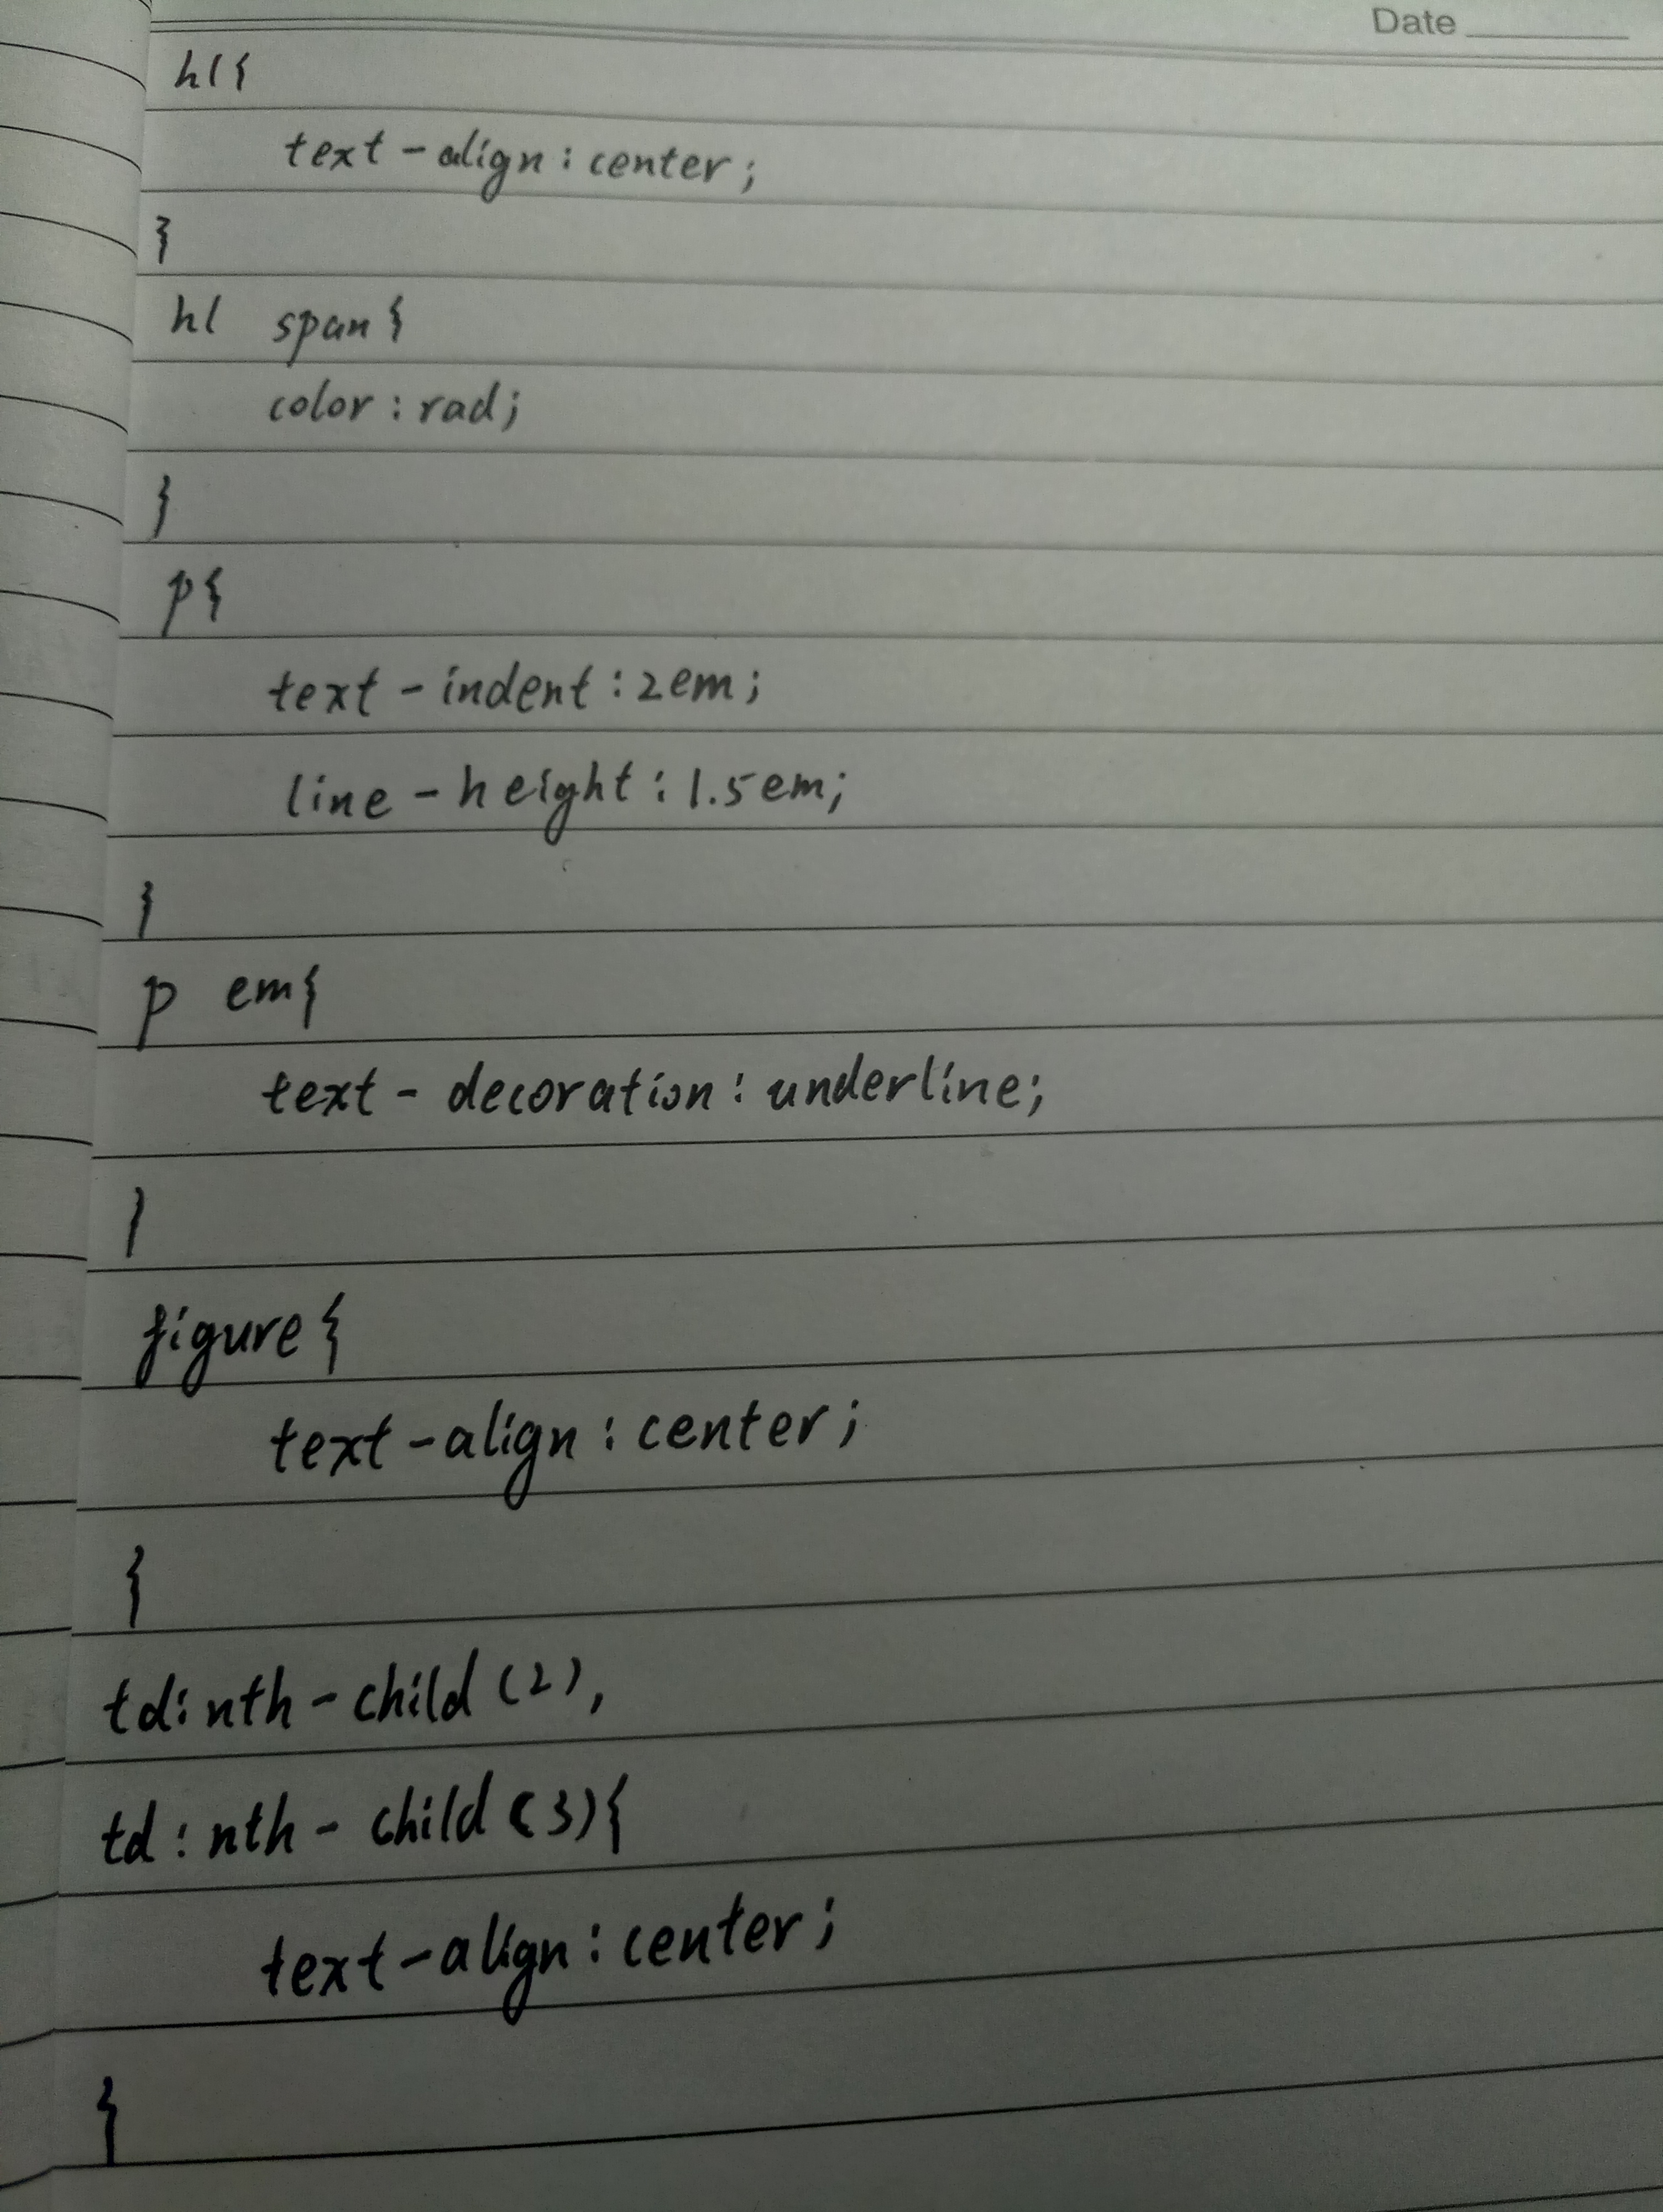 Date
h1{
text-align:center;
}
h1 span{
color:rad;
}
p{
text-indent:2em;
line-height:1.5em;
}
p em{
text-decoration:underline;
}
figure{
text-align:center;
{
td:nth-child(2),
td:nth-child(3){
text-align:center;
{